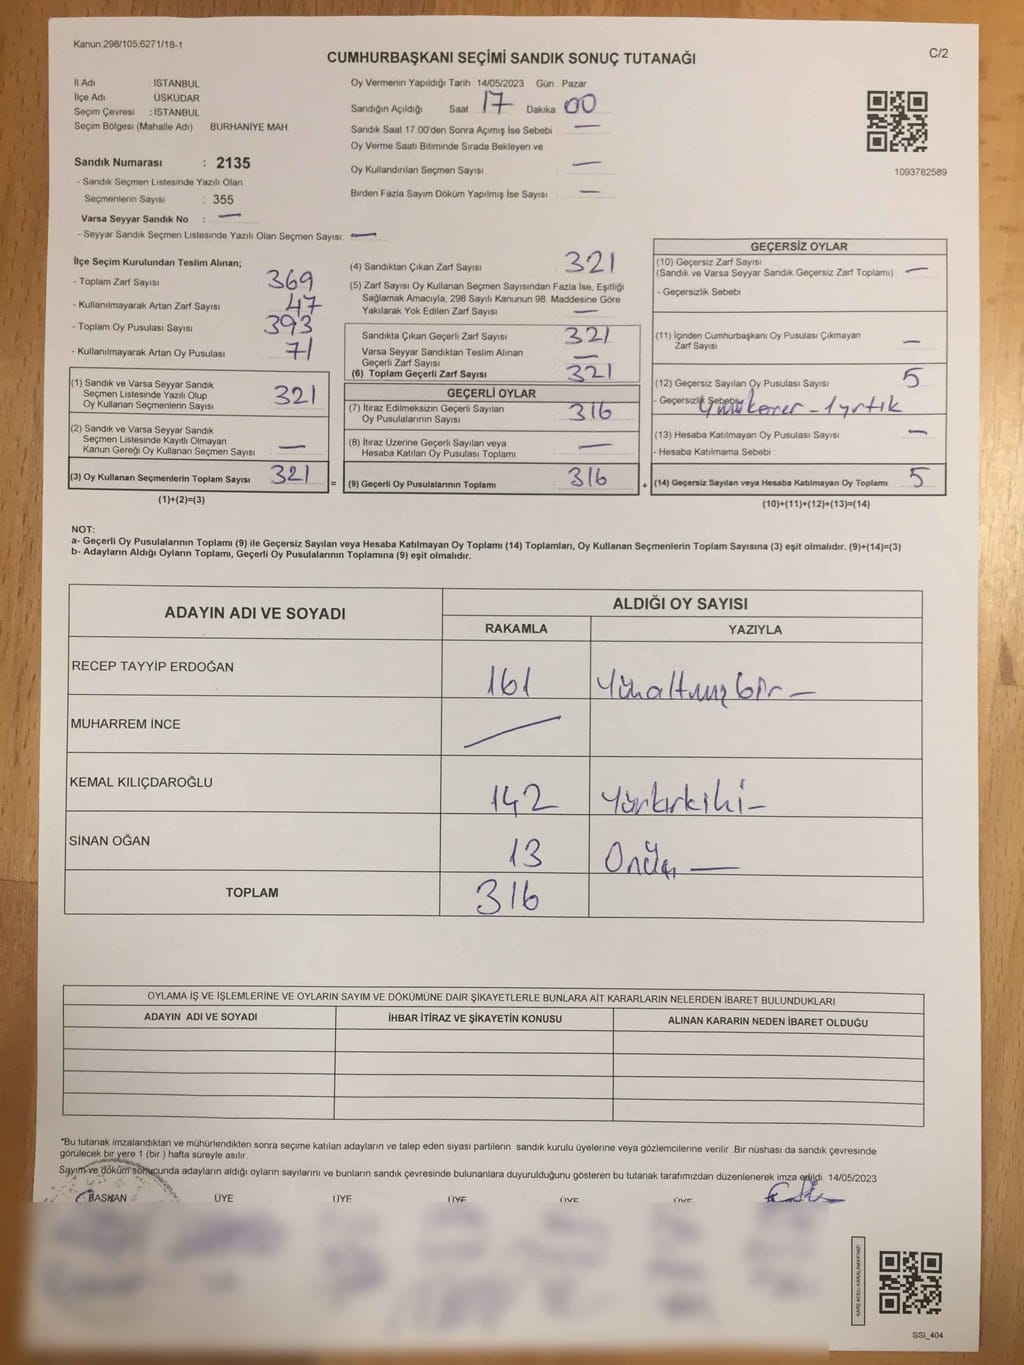 Kanun:298/105,6271/18-1
CUMHURBAŞKANI SEÇİMİ SANDIK SONUÇ TUTANAĞI
C/2
İl Adı : İSTANBUL
İlçe Adı : ÜSKÜDAR
Seçim Çevresi : İSTANBUL
Seçim Bölgesi (Mahalle Adı) BURHANİYE MAH.
Oy Vermenin Yapıldığı Tarih : 14/05/2023 Gün : Pazar
Sandığın Açıldığı Saat 17 Dakika 00
Sandık Saat 17.00'den Sonra Açımış İse Sebebi : —
Oy Verme Saati Bitiminde Sırada Bekleyen ve
Oy Kullandırılan Seçmen Sayısı : —
Birden Fazla Sayım Döküm Yapılmış İse Sayısı : —
1093782589
Sandık Numarası : 2135
- Sandık Seçmen Listesinde Yazılı Olan
Seçmenlerin Sayısı : 355
Varsa Seyyar Sandık No : —
- Seyyar Sandık Seçmen Listesinde Yazılı Olan Seçmen Sayısı: —
İlçe Seçim Kurulundan Teslim Alınan;
- Toplam Zarf Sayısı 369
- Kullanılmayarak Artan Zarf Sayısı 47
- Toplam Oy Pusulası Sayısı 393
- Kullanılmayarak Artan Oy Pusulası 71
(1) Sandık ve Varsa Seyyar Sandık
Seçmen Listesinde Yazılı Olup
Oy Kullanan Seçmenlerin Sayısı 321
(2) Sandık ve Varsa Seyyar Sandık
Seçmen Listesinde Kayıtlı Olmayan
Kanun Gereği Oy Kullanan Seçmen Sayısı —
(3) Oy Kullanan Seçmenlerin Toplam Sayısı 321
(1)+(2)=(3)
(4) Sandıktan Çıkan Zarf Sayısı 321
(5) Zarf Sayısı Oy Kullanan Seçmen Sayısından Fazla İse, Eşitliği
Sağlamak Amacıyla; 298 Sayılı Kanunun 98. Maddesine Göre
Yakılarak Yok Edilen Zarf Sayısı : —
Sandıkta Çıkan Geçerli Zarf Sayısı 321
Varsa Seyyar Sandıktan Teslim Alınan
Geçerli Zarf Sayısı —
(6) Toplam Geçerli Zarf Sayısı 321
GEÇERLİ OYLAR
(7) İtiraz Edilmeksizin Geçerli Sayılan
Oy Pusulasının Sayısı 316
(8) İtiraz Üzerine Geçerli Sayılan veya
Hesaba Katılan Oy Pusulası Toplamı —
= (9) Geçerli Oy Pusulalarının Toplamı 316
GEÇERSİZ OYLAR
(10) Geçersiz Zarf Sayısı
(Sandık ve Varsa Seyyar Sandık Geçersiz Zarf Toplamı) —
- Geçersizlik Sebebi :
(11) İçinden Cumhurbaşkanı Oy Pusulası Çıkmayan
Zarf Sayısı —
(12) Geçersiz Sayılan Oy Pusulası Sayısı 5
- Geçersizlik Sebebi 4 mükerrer - 1 yırtık
(13) Hesaba Katılmayan Oy Pusulası Sayısı —
- Hesaba Katılmama Sebebi :
+ (14) Geçersiz Sayılan veya Hesaba Katılmayan Oy Toplamı 5
(10)+(11)+(12)+(13)=(14)
NOT:
a- Geçerli Oy Pusulalarının Toplamı (9) ile Geçersiz Sayılan veya Hesaba Katılmayan Oy Toplamı (14) Toplamları, Oy Kullanan Seçmenlerin Toplam Sayısına (3) eşit olmalıdır. (9)+(14)=(3)
b- Adayların Aldığı Oyların Toplamı, Geçerli Oy Pusulalarının Toplamına (9) eşit olmalıdır.
ADAYIN ADI VE SOYADI
ALDIĞI OY SAYISI
RAKAMLA YAZIYLA
RECEP TAYYİP ERDOĞAN 161 Yüzaltmışbir —
MUHARREM İNCE
KEMAL KILIÇDAROĞLU 142 Yüzkırkiki —
SİNAN OĞAN 13 Onüç —
TOPLAM 316
OYLAMA İŞ VE İŞLEMLERİNE VE OYLARIN SAYIM VE DÖKÜMÜNE DAİR ŞİKAYETLERLE BUNLARA AİT KARARLARIN NELERDEN İBARET BULUNDUKLARI
ADAYIN ADI VE SOYADI İHBAR İTİRAZ VE ŞİKAYETİN KONUSU ALINAN KARARIN NEDEN İBARET OLDUĞU
"Bu tutanak imzalandıktan ve mühürlendikten sonra seçime katılan adayların ve talep eden siyasi partilerin sandık kurulu üyelerine veya gözlemcilerine verilir. Bir nüshası da sandık çevresinde
görülecek bir yere 1 (bir) hafta süreyle asılır.
Sayım ve döküm sonucunda adayların aldığı oyların sayılarını ve bunların sandık çevresinde bulunanlara duyurulduğunu gösteren bu tutanak tarafımızdan düzenlenerek imza edildi. 14/05/2023
BAŞKAN ÜYE ÜYE ÜYE ÜYE ÜYE
SSI_404